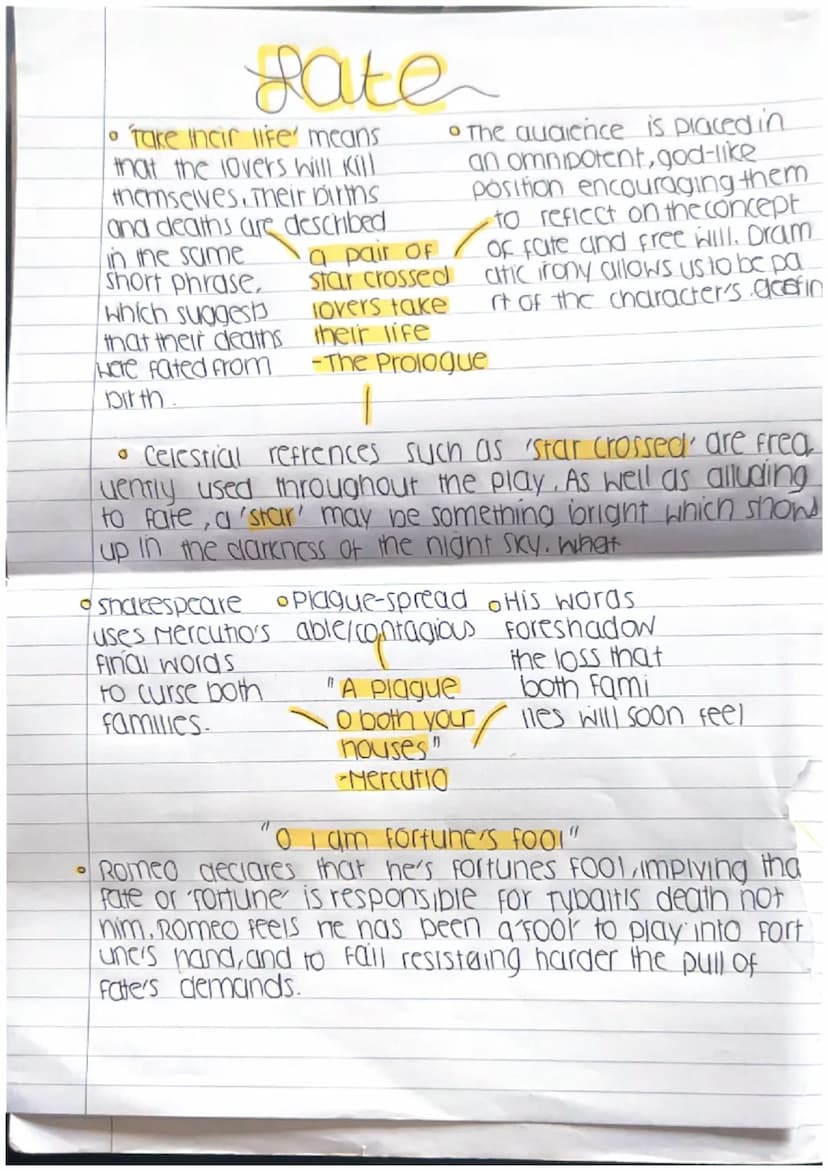 Fate
• 'Take their life' means
that the lovers will kill
themselves. Their births
and deaths are described
in the same
short phrase,
which suggests
that their deaths
were fated from
birth.
• The audience is placed in
an omnipotent, god-like
position encouraging them
to reflect on the concept
of fate and free will. Dram
atic irony allows us to be pa
rt of the character's
a pair of
star crossed
lovers take
their life
-The Prologue
• Celestial refrences such as 'star crossed' are freq
uently used throughout the play. As well as alluding
to fate, a 'star' may be something bright which shows
up in the darkness of the night sky. What
• Shakespeare
uses Mercutio's
final words
to curse both
families.
• Plague-spread
able/contagious
• His words
foreshadow
the loss that
both fami
lies will soon feel
"A plague
O both your
houses"
-Mercutio
"O I am fortune's fool"
• Romeo declares that he's fortunes fool, implying tha
fate or 'fortune' is responsible for Tybalt's death not
him. Romeo feels he has been a 'fool' to play into fort
une's hand, and to fail resistaing harder the pull of
fate's demands.